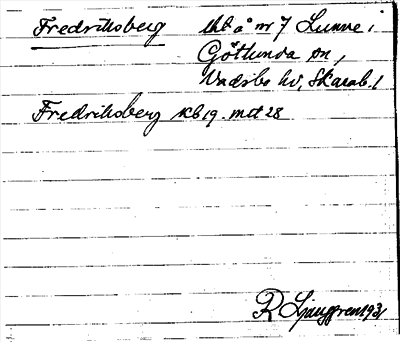 Fredriksberg lht å nr 7 Lunne i
Götlunda sn,
Vadsbo hd, Skarab. l
Fredriksberg Kb 19. mct 28
R Ljunggren 1931